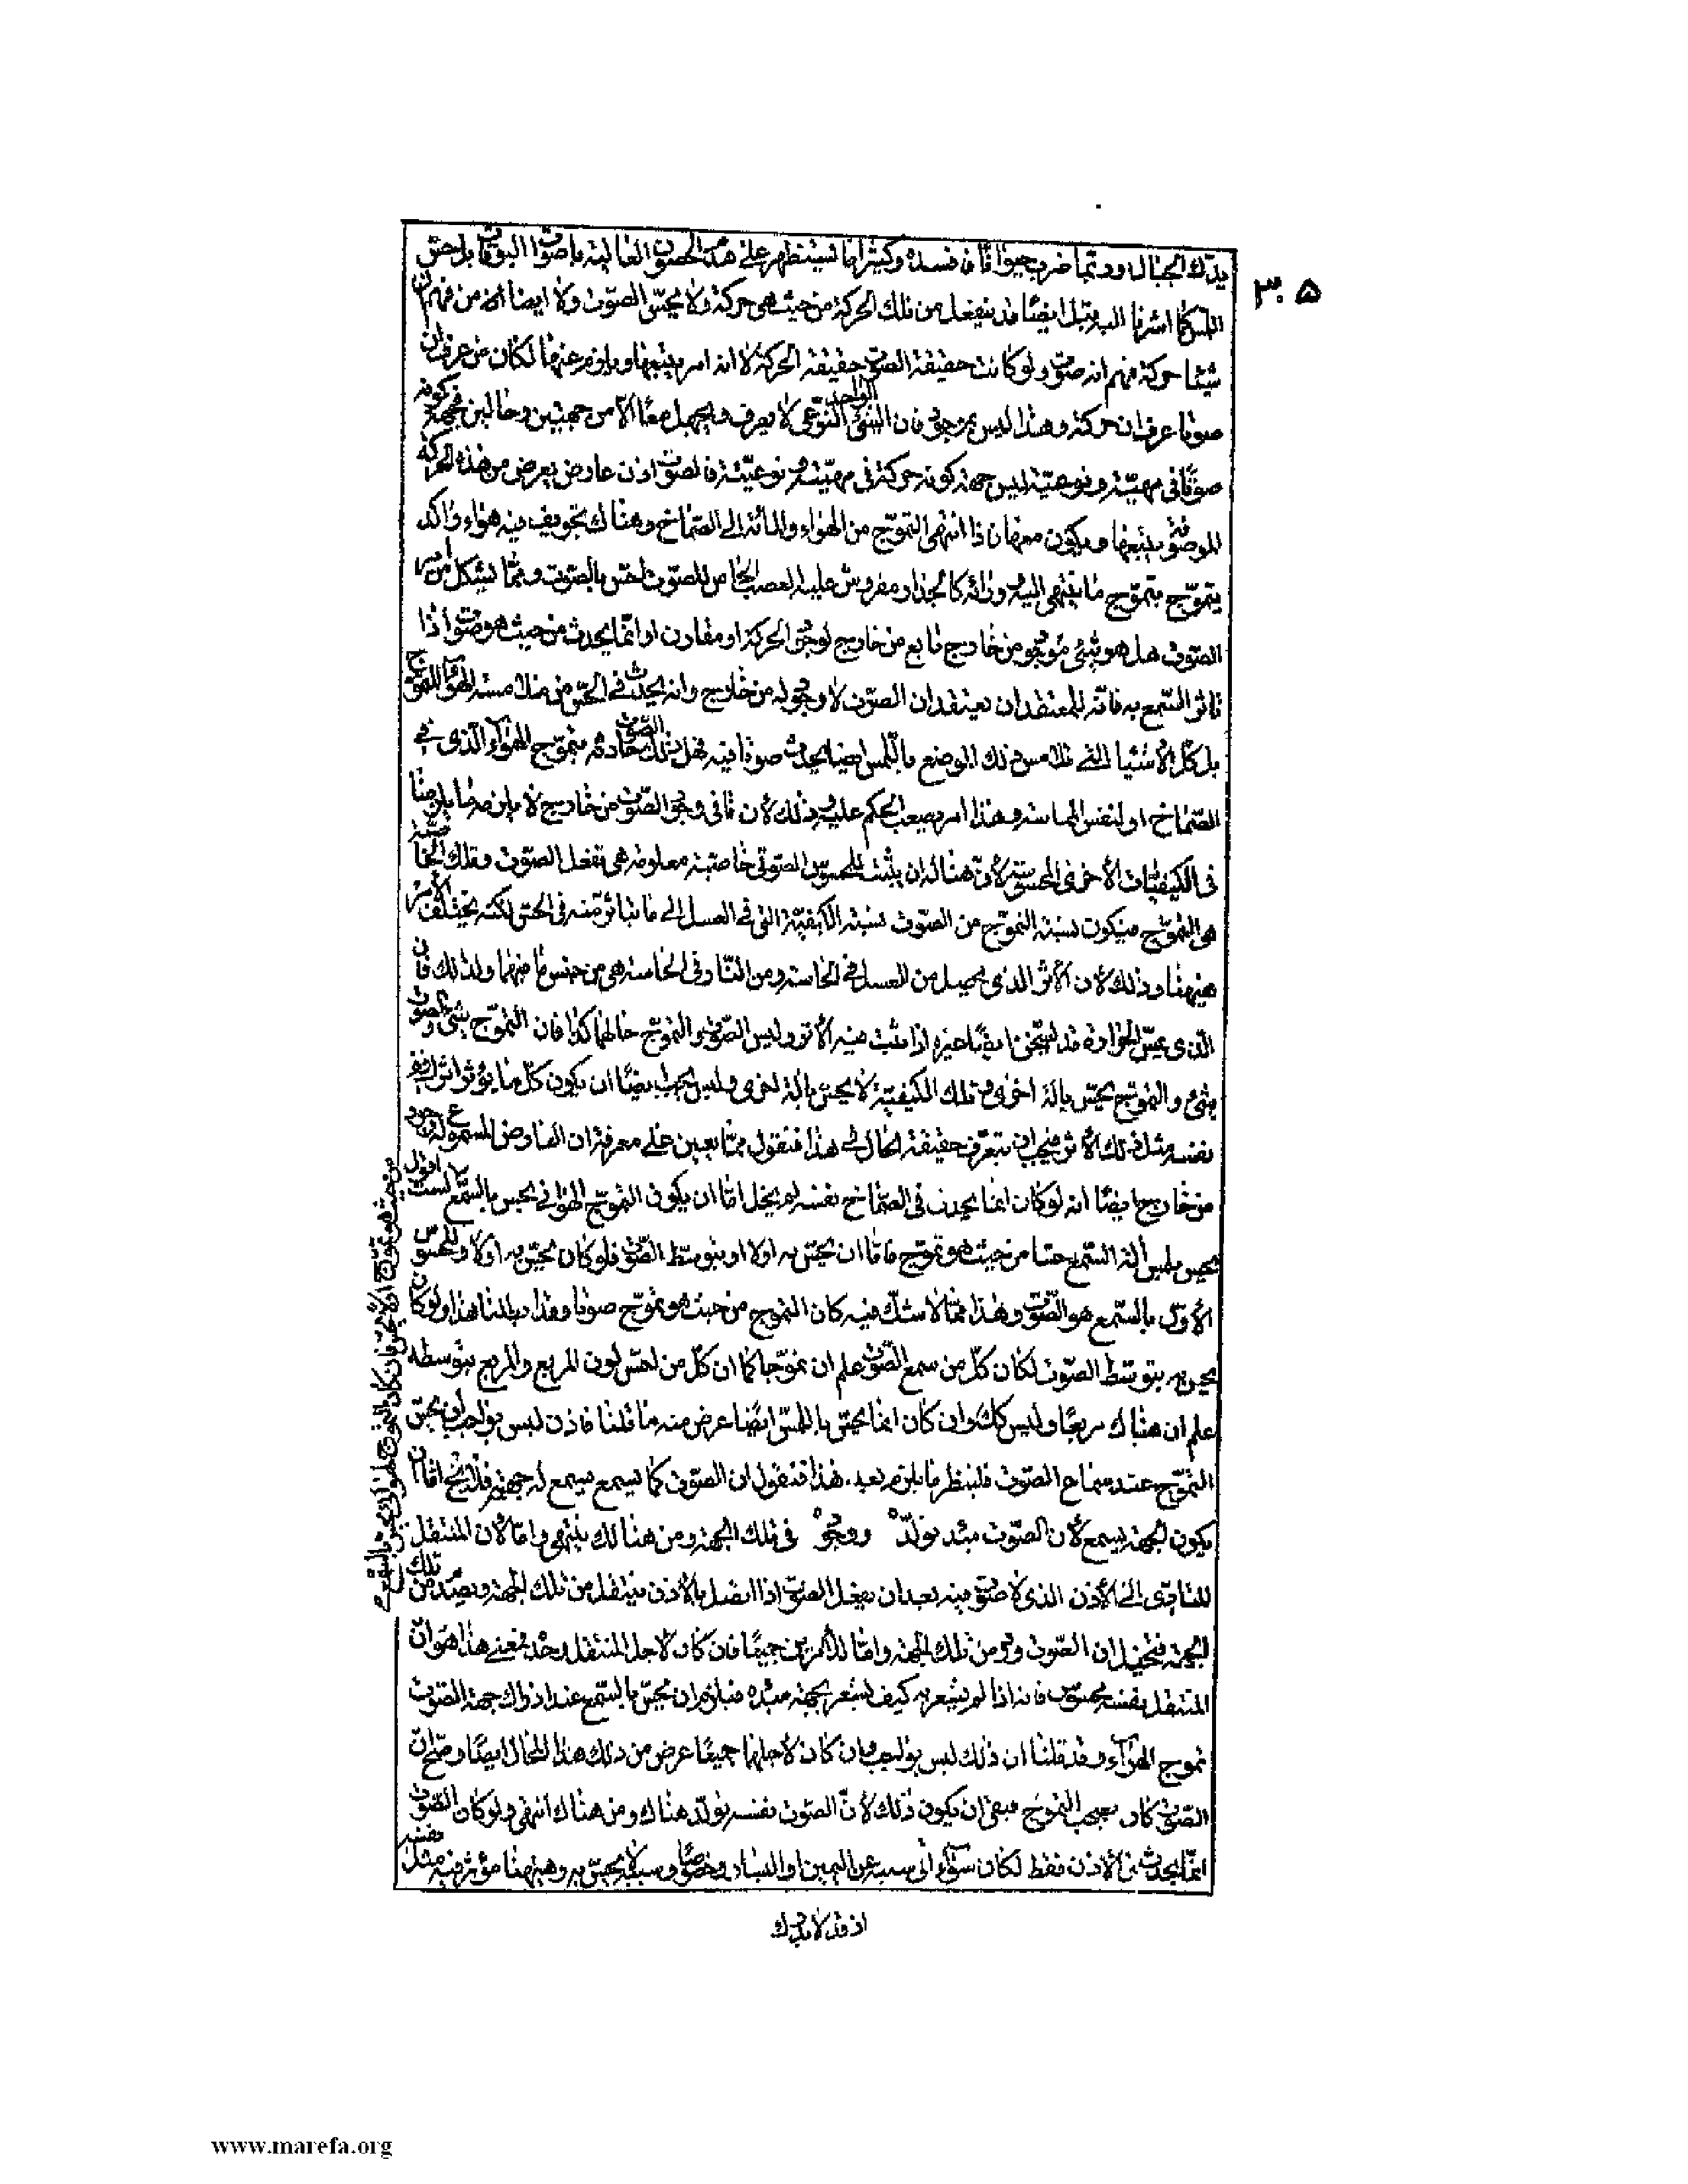 يدك الجبال وربما ضرب حيوانا فافسده وكثيرا ما يستظهر على هدم الحصون العالية باصوات البوقات بل حس
اللمس كما اشرنا اليه قبل ايضا قد ينفعل من تلك الحركة من حيث هي حركة ولا يحس الصوت ولا ايضا من فهم ان
شيئا حركة فهم انه صوت ولو كانت حقيقة الصوت حقيقة الحركة لا انه امر يتبعها ويلزم عنها لكان من عرف ان
صوتا عرف ان حركة وهذا ليس بموجود فان الشئ الواحد النوعي لا يعرف ويجهل معا الا من جهتين وحالين فجهة كونه
صوتا في مهيته ونوعيته ليس جهة كونه حركة في مهيته ونوعيته فالصوت اذن عارض يعرض من هذه الحركة
الموصوفة يتبعها ويكون معها فاذا انتهى التموج من الهواء والماء الى الصماخ وهناك تجويف فيه هواء راكد
يتموج بتموج ما ينتهي اليه ورائه كالجدار مفروش عليه العصب الحاس للصوت احس بالصوت ومما يشكل من امر
الصوت هل هو شئ موجود من خارج تابع من خارج لوجود الحركة او مقارن او انما يحدث من حيث هو صوت اذا
تاثر السمع به فانه للمعتقد ان يعتقد ان الصوت لا وجود له من خارج وانه يحدث في الحس من ملامسة الهواء المتموج
بل كل الاشياء التي تلامس ذلك الموضع باللمس ايضا يحدث صوتا فيه فهل ذلك الصوت حادث بتموج الهواء الذي في
الصماخ او لنفس المماسة وهذا امر يصعب الحكم عليه وذلك لان نافي وجود الصوت من خارج لا يلزمه ما يلزم نفاة
في الكيفيات الاخرى المحسوسة لان هنا له ان يثبت للمحسوس الصوتي خاصية معلومة هي تفعل الصوت وتلك الخاصية
هي التموج فيكون نسبة التموج من الصوت نسبة الكيفية التي في العسل الى ما يتاثر منه في الحس لكنه يختلف الامر
هيهنا وذلك لان الاثر الذي يحصل من العسل في الحاسة ومن النار في الحاسة هي من جنس ما فيهما ولذلك فان
الذي يمس الحرارة قد يسخن ايضا غيره اذا ثبت فيه الاثر وليس الصوت والتموج حالهما كذا فان التموج شئ والصوت
شئ والتموج يحس بالة اخرى وتلك الكيفية لا يحس بالة اخرى وليس يجب ايضا ان يكون كل ما يؤثر اثرا ففي
نفسه مثل ذلك الاثر فيجب ان نتعرف حقيقة الحال في هذا فنقول مما يعين على معرفة ان العارض المسموع له وجود
من خارج ايضا انه لو كان انما يحدث في الصماخ نفسه لم يخل اما ان يكون التموج الهوائي يحس بالسمع لست اقول
يحس بلمس الة السمع حسا من حيث هو تموج فاما ان يحس به اولا او بتوسط الصوت فلو كان يحس به اولا والمحسوس
الاول بالسمع هو الصوت وهذا مما لا شك فيه كان التموج من حيث هو تموج صوتا وقد ابطلنا هذا ولو كان
يحس به بتوسط الصوت لكان كل من سمع الصوت علم ان تموجا كما ان كل من احس لون المربع والمربع بتوسطه
علم ان هناك مربعا وليس كذلك وان كان انما يحس باللمس ايضا عرض منه ما قلنا فاذن ليس بواجب ان يحس
التموج عند سماع الصوت فلينظر ما يلزم بعد هذا فنقول ان الصوت كما يسمع يسمع له جهة فلا يخ اما ان
يكون الجهة يسمع لان الصوت مبدء تولده ووجوده في تلك الجهة ومن هنالك ينتهي واما لان المنتقل
المتادى الى الاذن الذي لا صوت فيه بعد ان يفعل الصوت اذا اتصل بالاذن ينتقل من تلك الجهة ويصدم من تلك
الجهة فتخيل ان الصوت ورد من تلك الجهة واما للامرين جميعا فان كان لاجل المنتقل وحده فمعنى هذا هو ان
المنتقل بنفسه محسوس فانه اذا لم يشعر به كيف يشعر بجهة مبدئه فيلزم ان يحس بالسمع عند ادراك جهة الصوت
تموج الهواء وقد قلنا ان ذلك ليس بواجب وان كان لاجلهما جميعا عرض من ذلك هذا المحال ايضا وصح ان
الصوت كان يصحب التموج فبقى ان يكون ذلك لان الصوت نفسه تولد هناك ومن هناك انتهى ولو كان الصوت
انما يحدث في الاذن فقط لكان سواء اتى سببه عن اليمين او اليسار وخصوصا وسببه لا يحس به وهيهنا مؤثر فيه مثل نفسه
اذ قد لا يدرك
من حيث هو تموج او لا يحس فان كان التموج الهوائي يحس بالسمع
٣٠٥
www.marefa.org